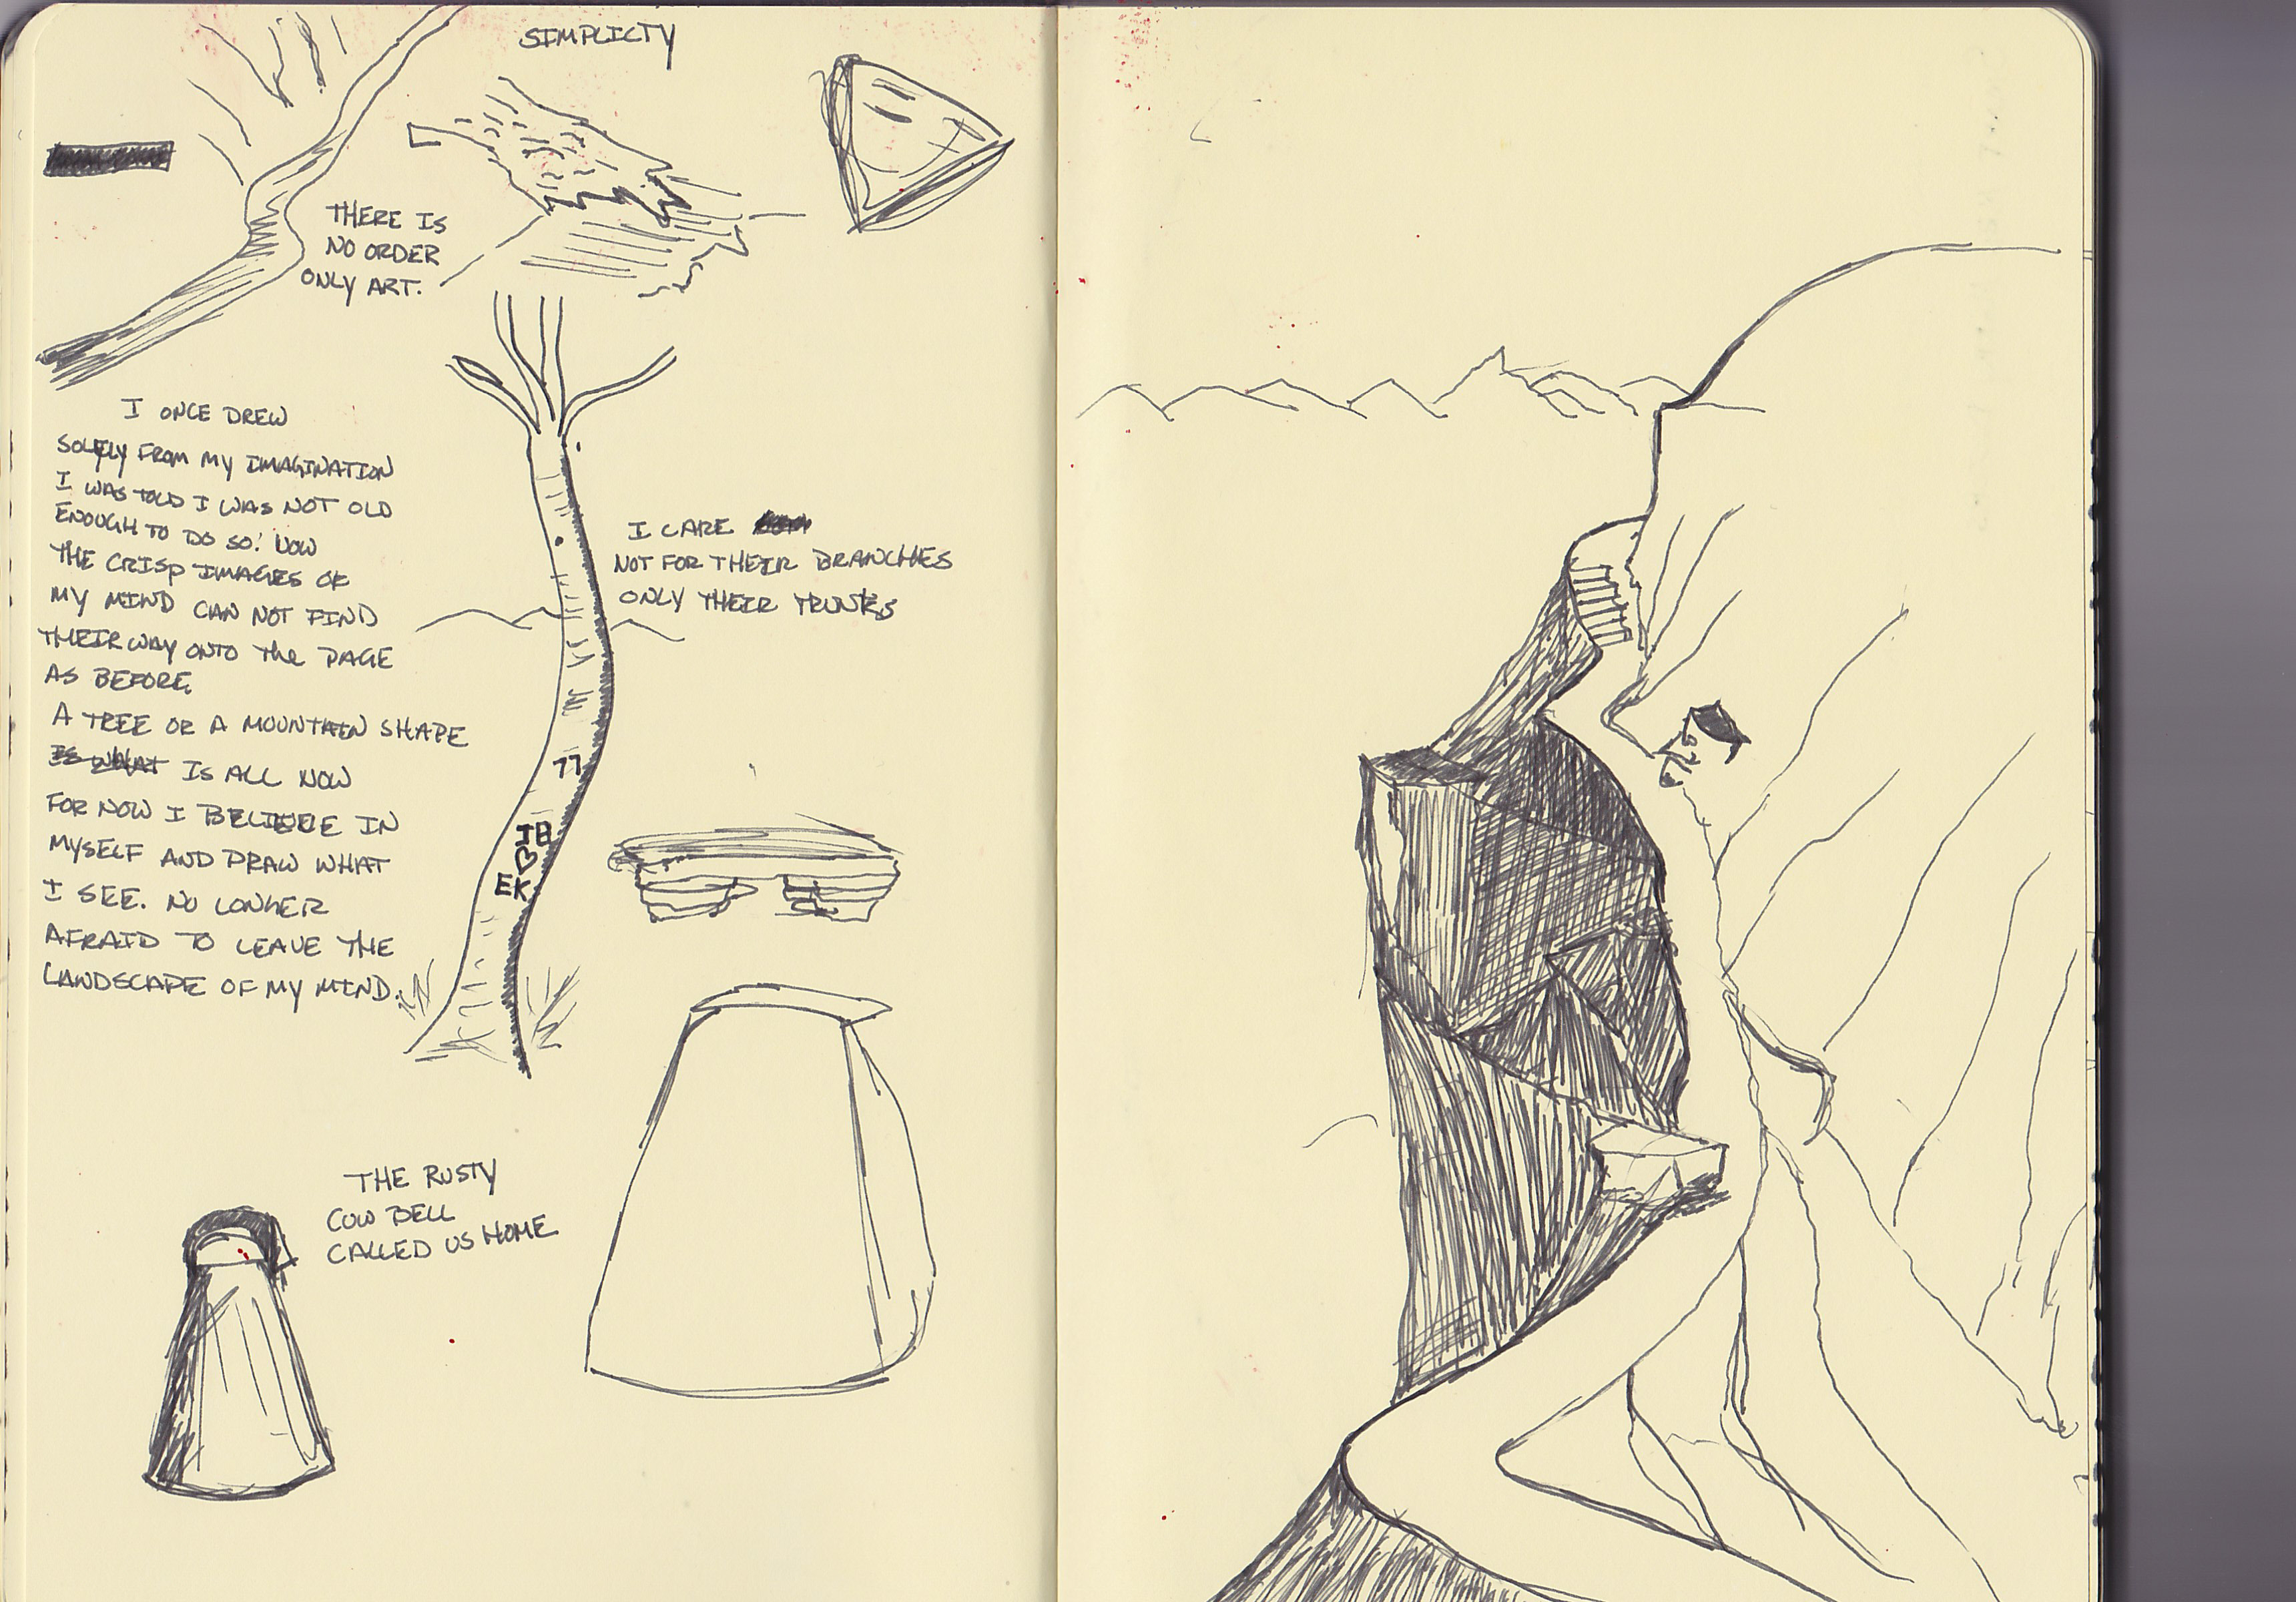 SIMPLICTY
THERE IS
NO ORDER
ONLY ART.
I ONCE DREW
SOLELY FROM MY IMAGINATION
I WAS TOLD I WAS NOT OLD
ENOUGH TO DO SO. NOW
THE CRISP IMAGES OF
MY MIND CAN NOT FIND
THEIR WAY ONTO The PAGE
AS BEFORE.
A TREE OR A MOUNTAIN SHAPE
IS WHAT IS ALL NOW
FOR NOW I BELIEVE IN
MYSELF AND DRAW WHAT
I SEE. NO LONGER
AFRAID TO LEAVE THE
LANDSCAPE OF MY MIND.
I CARE
NOT FOR THEIR BRANCHES
ONLY THEIR TRUNKS
77
JB
EK
THE RUSTY
COW BELL
CALLED US HOME